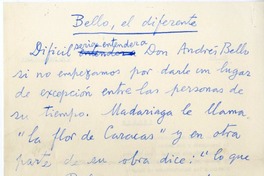 Bello, el diferente
Difícil sería entender a Don Andrés Bello
si no empezamos por darle un lugar
de excepción entre las personas de
su tiempo. Madariaga le llama
"la flor de Caracas" y en otra
parte de su obra dice: "lo que